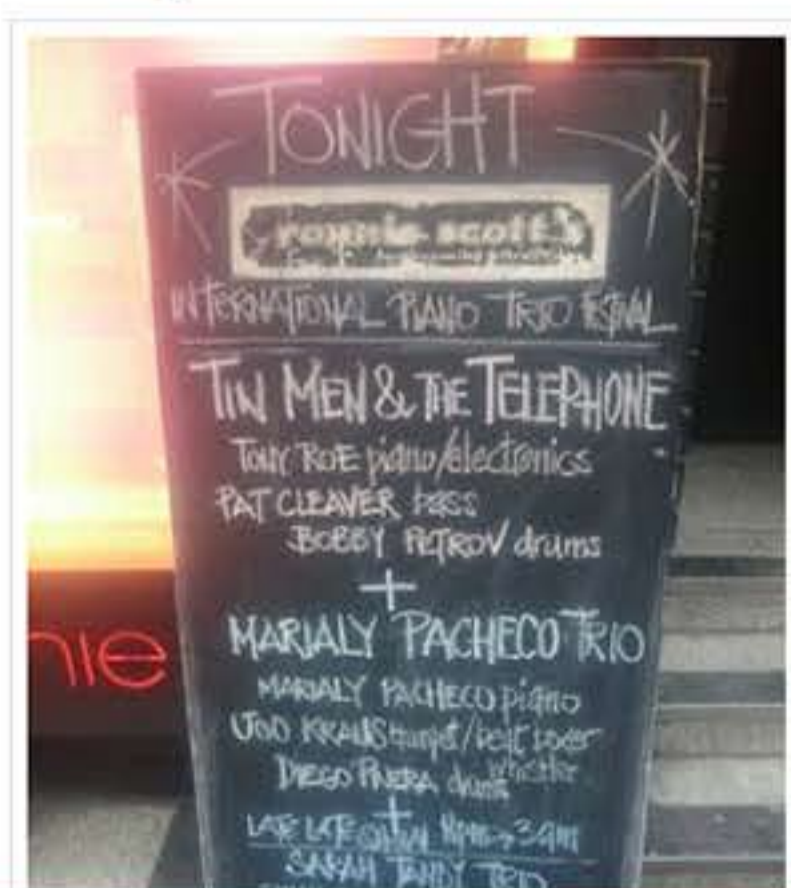 TONIGHT
ronnie scott's
INTERNATIONAL PIANO TRIO FESTIVAL
TIN MEN & THE TELEPHONE
TONY ROE piano/electronics
PAT CLEAVER bass
BOBBY PETROV drums
+
MARIALY PACHECO TRIO
MARIALY PACHECO piano
KRAUS
whistler
DIEGO PINERA drums
+
LATE LATE SHOW 11pm → 3am
SARAH TANDY TRIO
nie